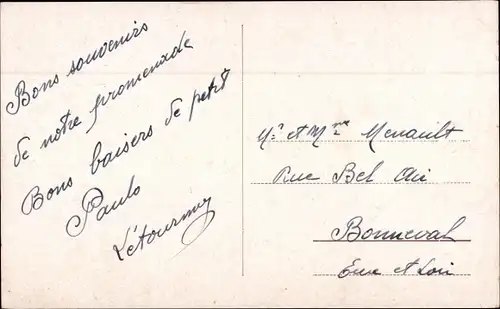 Bons souvenirs
de notre promenade
Bons baisers de petit
Paulo
Létourney
Mr et Mme Menault
Rue Bel Air
Bonneval
Eure et Loir